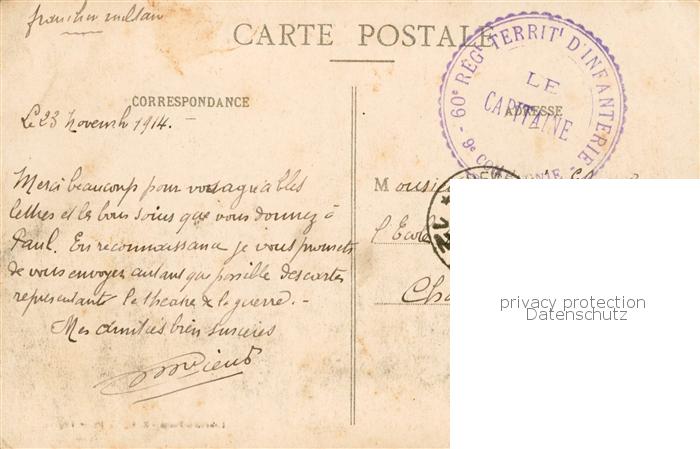 franchise militaire
CARTE POSTALE
60e RÉGt TERRITl D'INFANTERIE
LE
CAPITAINE
9e COMPAGNIE
CORRESPONDANCE
ADRESSE
Le 23 Novembre 1914.
Merci beaucoup pour vos agréables
lettres et les bons soins que vous donnez à
Paul. En reconnaissance je vous promets
de vous envoyer autant que possible des cartes
représentant le théatre de la guerre. -
Mes amitiés bien sincères
Monsieur
l'Ecole
privacy protection
Datenschutz